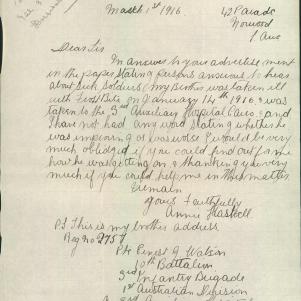 March 1st 1916
42 Parade
Norwood
Dear Sir
In answer to your advertisement
in the paper stating persons anxious to hear
about sick soldiers, my Brother was taken ill
with Frost Bite on January 14th 1916 & was
taken to the 3rd Auxiliary Hospital Cairo & and
I have not had any word stating whether he
was improving or was worse I would be very
much obliged if you could find out for me
how he was getting on & thanking you very
much if you could help me in this matter
I remain
yours faithfully
Annie Haskell
P.S This is my brother address
Reg No 2757
Pte Ernest G Watson
10th Battalion
3rd Infantry Brigade
1st Australian Division